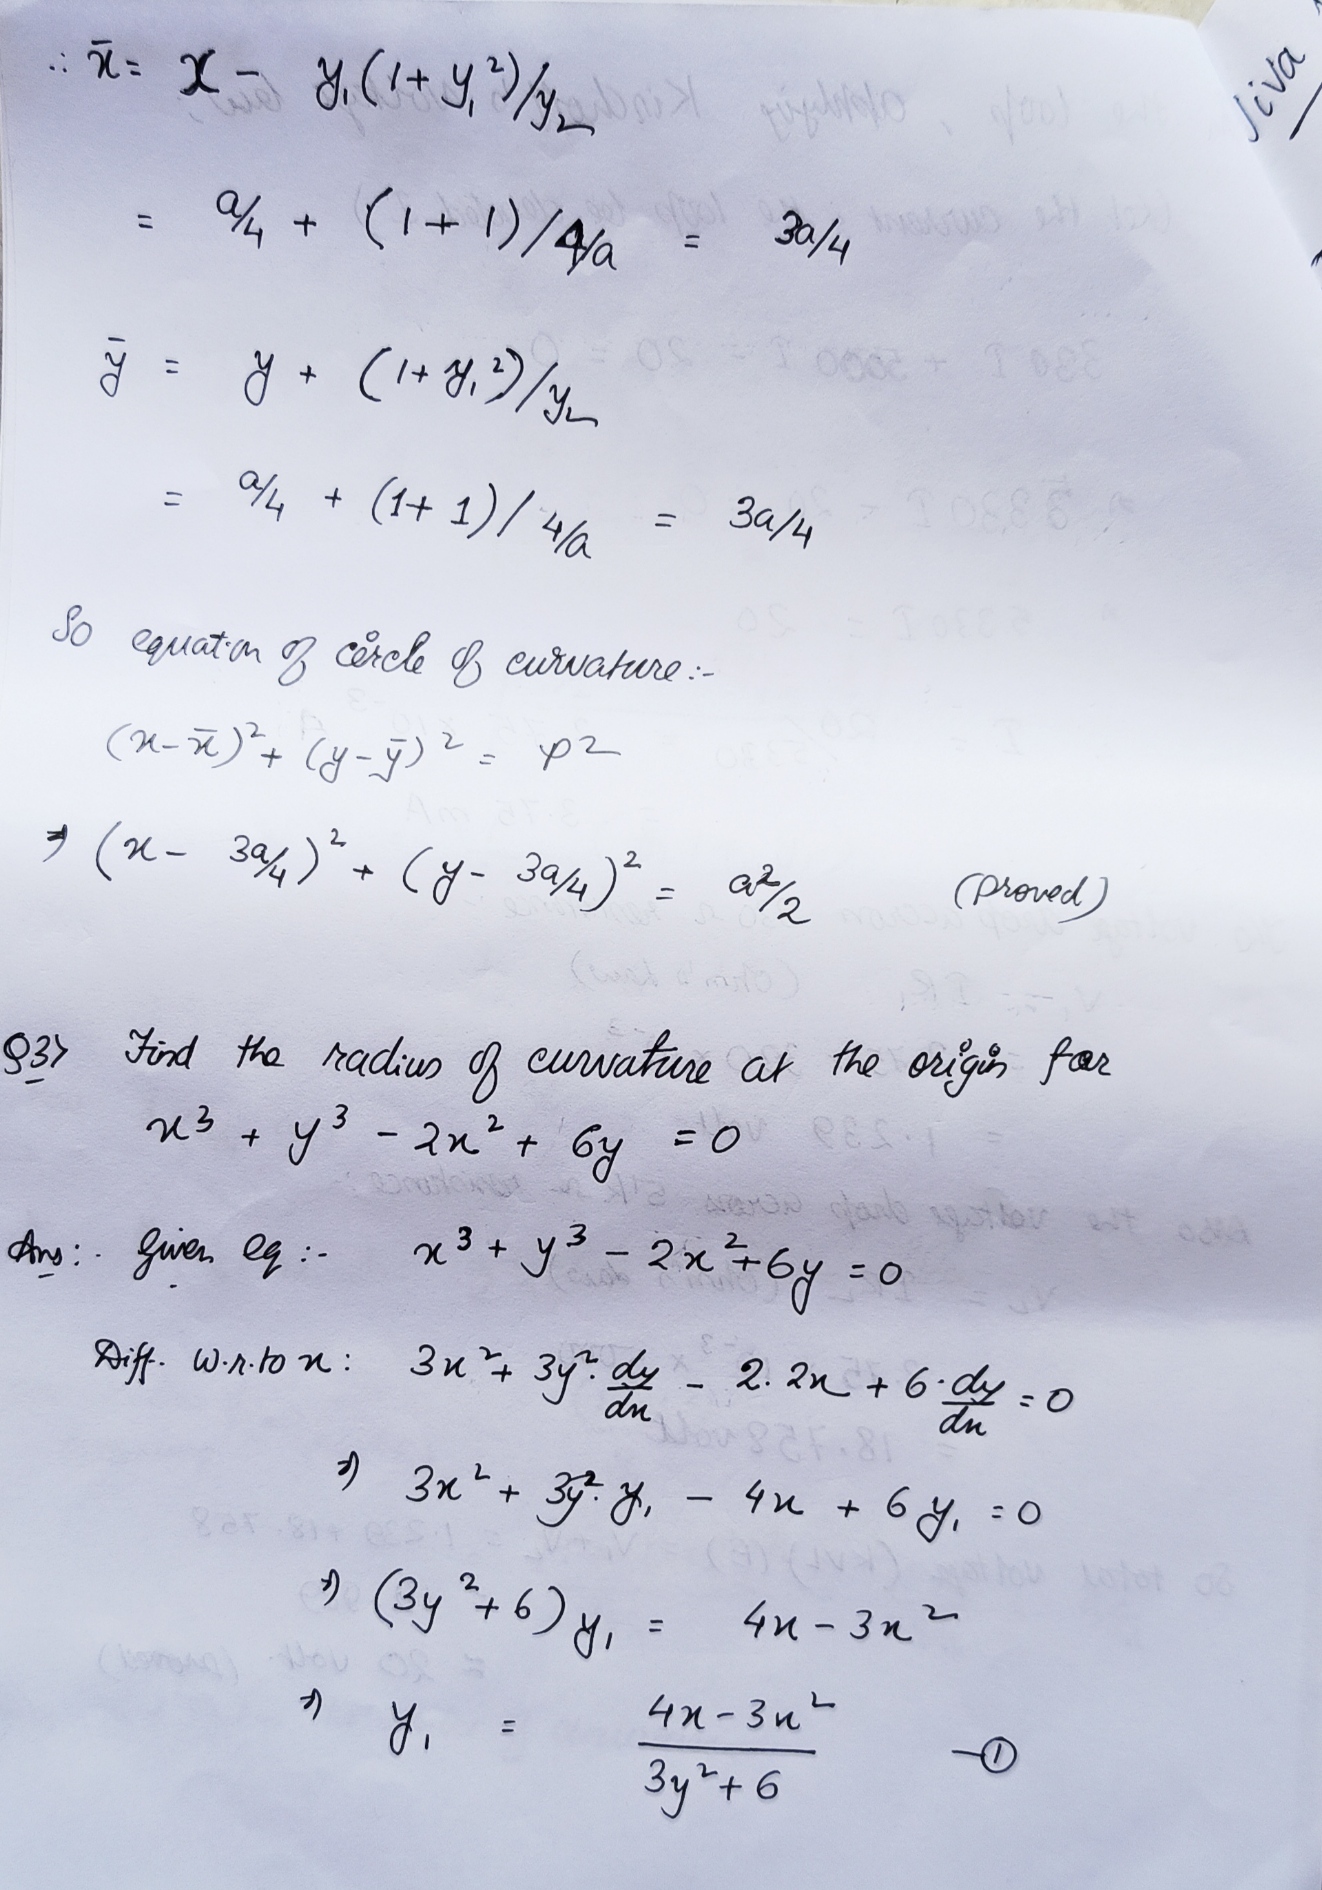 ∴ x̄ = x - y₁(1+y₁²)/y₂
= a/4 + (1+1)/4/a = 3a/4
ȳ = y + (1+y₁²)/y₂
= a/4 + (1+1)/4/a = 3a/4
So equation of circle of curvature:-
(x-x̄)² + (y-ȳ)² = ρ²
⇒ (x - 3a/4)² + (y - 3a/4)² = a²/2 (proved)
Q3> Find the radius of curvature at the origin for
x³ + y³ - 2x² + 6y = 0
Ans:. Given eq :- x³ + y³ - 2x² + 6y = 0
Diff. w.r.to x: 3x² + 3y².dy/dx - 2.2x + 6.dy/dx = 0
⇒ 3x² + 3y².y₁ - 4x + 6y₁ = 0
⇒ (3y²+6)y₁ = 4x - 3x²
⇒ y₁ = (4x-3x²)/(3y²+6) —①